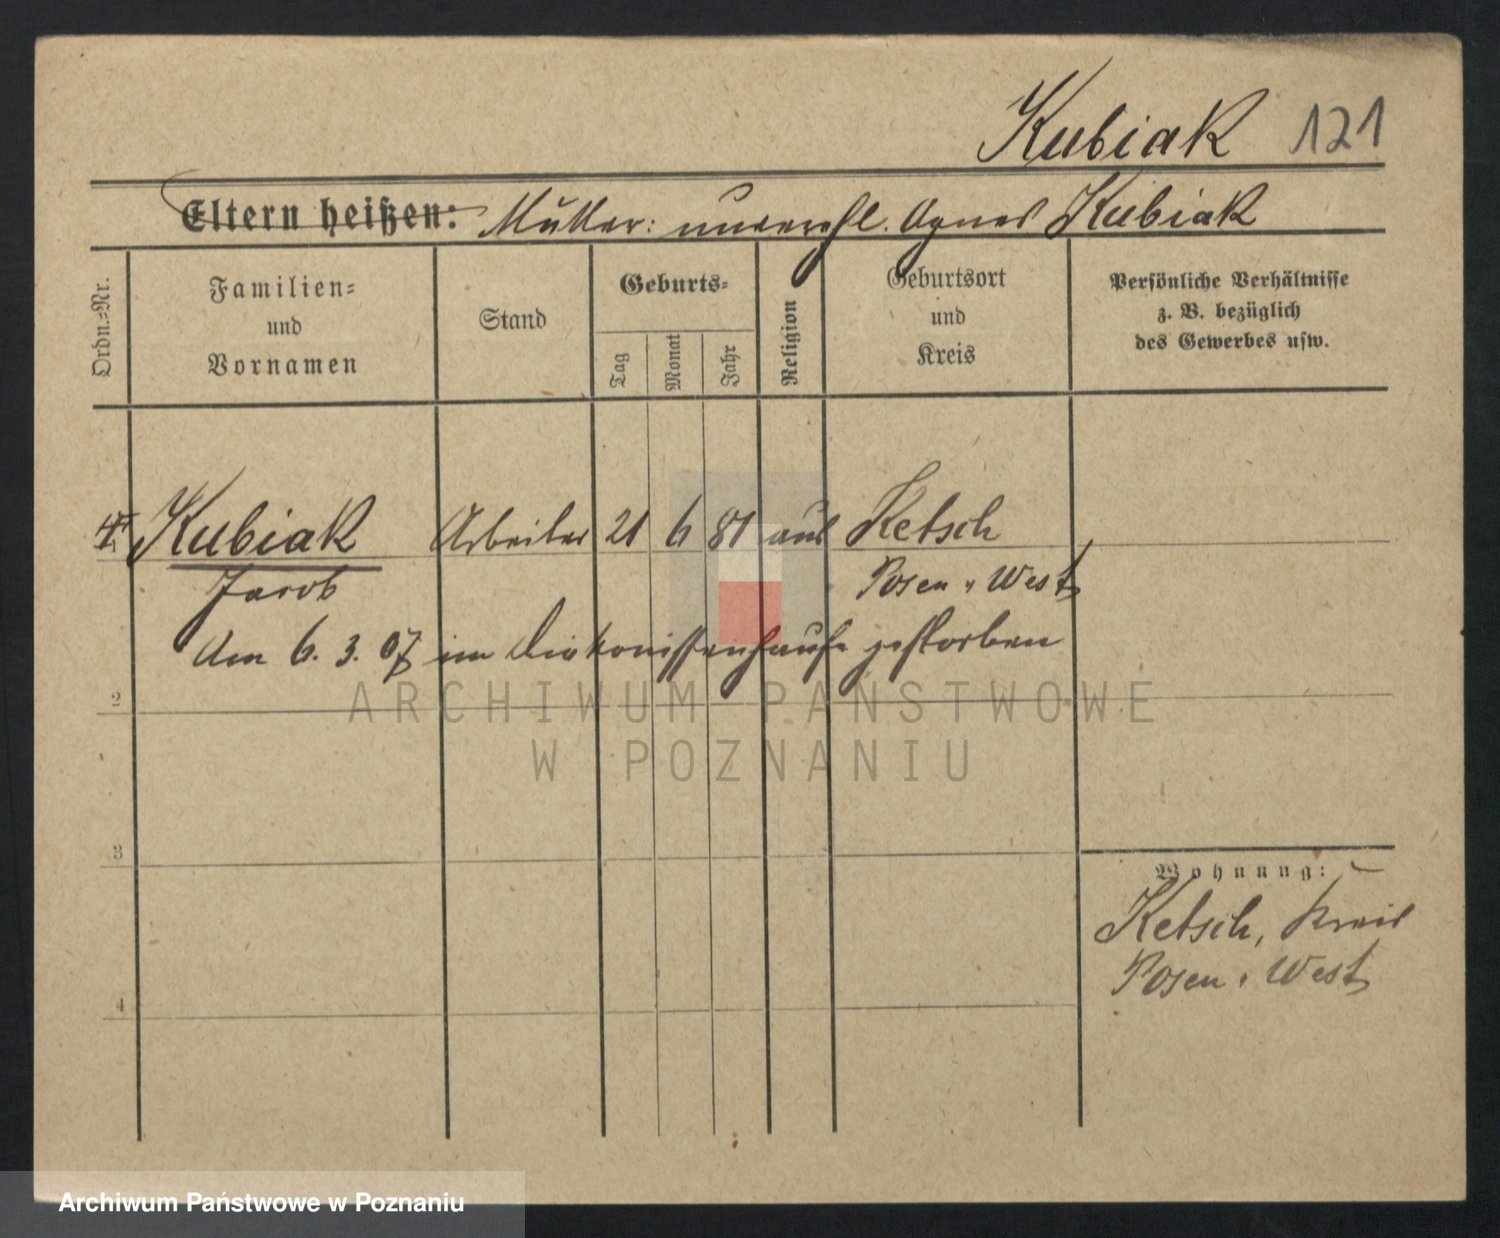 Kubiak 121
Eltern heißen: Mutter: unverehl. Agnes Kubiak
Ordn.=Nr.
Familien=
und
Vornamen
Stand
Geburts=
Tag
Monat
Jahr
Religion
Geburtsort
und
Kreis
Persönliche Verhältnisse
z. B. bezüglich
des Gewerbes usw.
Kubiak Arbeiter 21 6 81 aus Ketsch
Jacob Posen-West
Am 6. 3. 07 im Diakonissenhause gestorben
2
3
4
Wohnung:
Ketsch, Kreis
Posen-West
ARCHIWUM PAŃSTWOWE
W POZNANIU
Archiwum Państwowe w Poznaniu